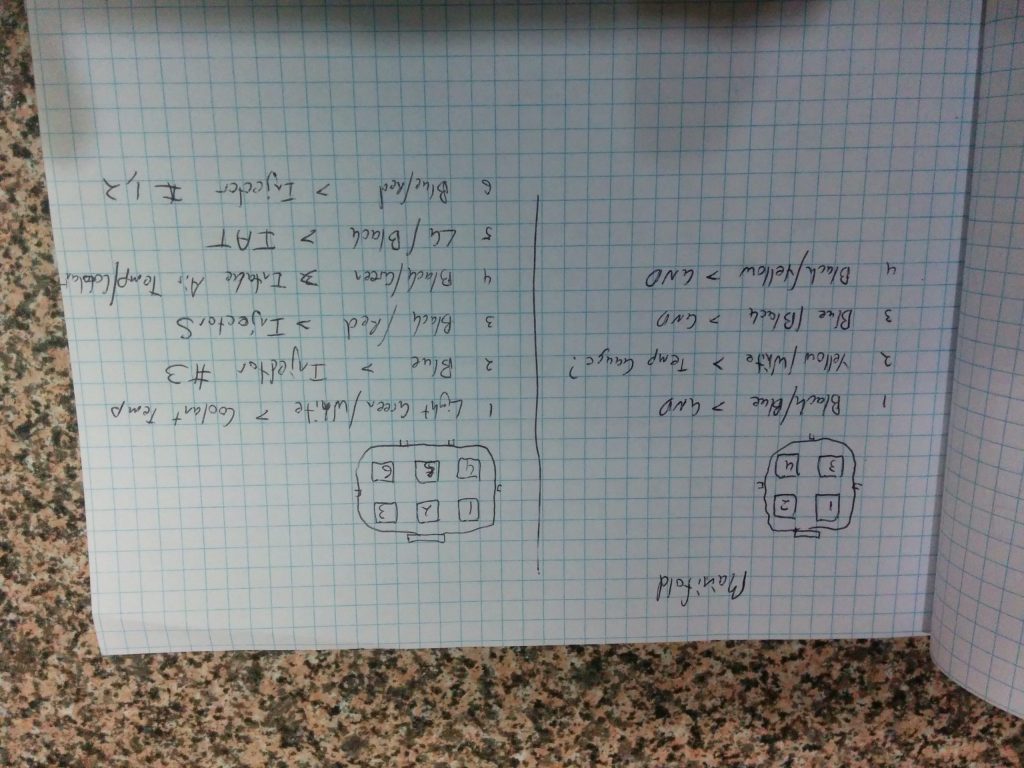 Manifold
1 2
3 4
1 Black/Blue > GND
2 Yellow/White > Temp Gauge?
3 Blue/Black > GND
4 Black/Yellow > GND
1 2 3
4 5 6
1 Light Green/White > Coolant Temp
2 Blue > Injector #3
3 Black/Red > Injectors
4 Black/Green > Intake Air Temp/Coolant
5 LG/Black > IAT
6 Blue/Red > Injector # 1,2